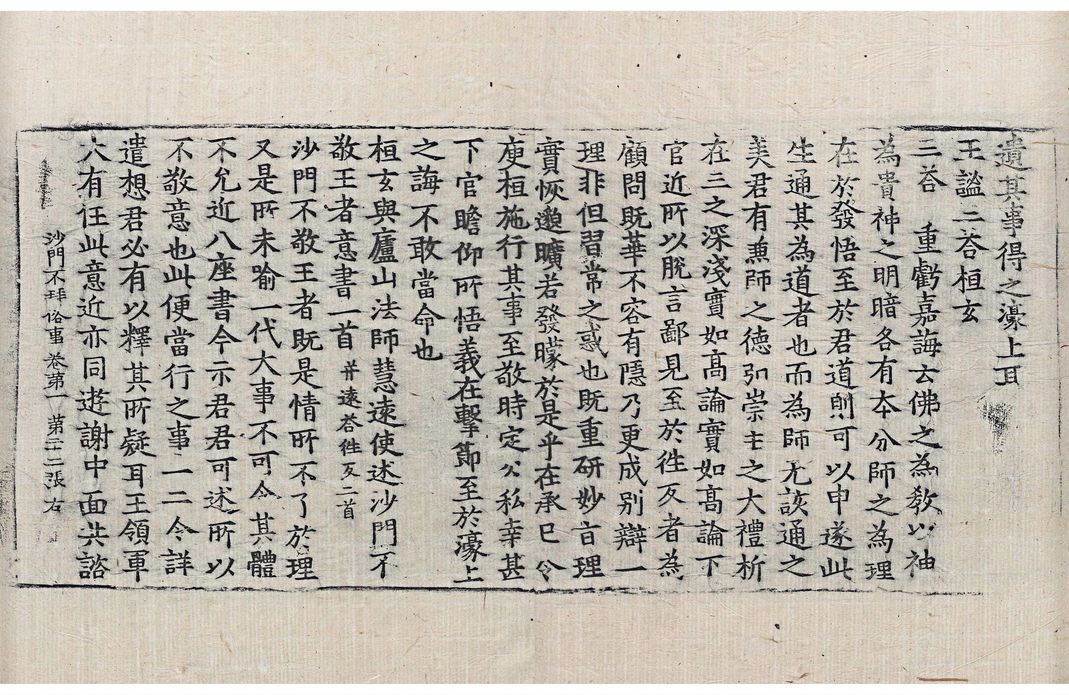 遺其事得之濠上耳
王謐二荅桓玄
三荅　重虧嘉誨云佛之為教以神
為貴神之明暗各有本分分師之為理
在於發悟至於君道則可以申遂此
生通其為道者也而為師无該通之
美君有兼師之德弘崇主之大禮析
在三之深淺實如髙論實如髙論下
官近所以脫言鄙見至於徃反者為
顧問既萃不容有隱乃更成別辯一
理非但習常之惑也既重研妙旨理
實恢邈曠若發矇於是乎在承已令
庾桓施行其事至敬時定公私幸甚
下官瞻仰所悟義在擊節至於濠上
之誨不敢當命也
桓玄與廬山法師慧遠使述沙門不
敬王者意書一首 并遠荅徃反二首
沙門不敬王者既是情所不了於理
又是所未喻一代大事不可令其體
不允近八座書今示君君可述所以
不敬意也此便當行之事一二令詳
遣想君必有以釋其所疑耳王領軍
大有任此意近亦同遊謝中面共諮
沙門不拜俗事卷第一　第二二張　右